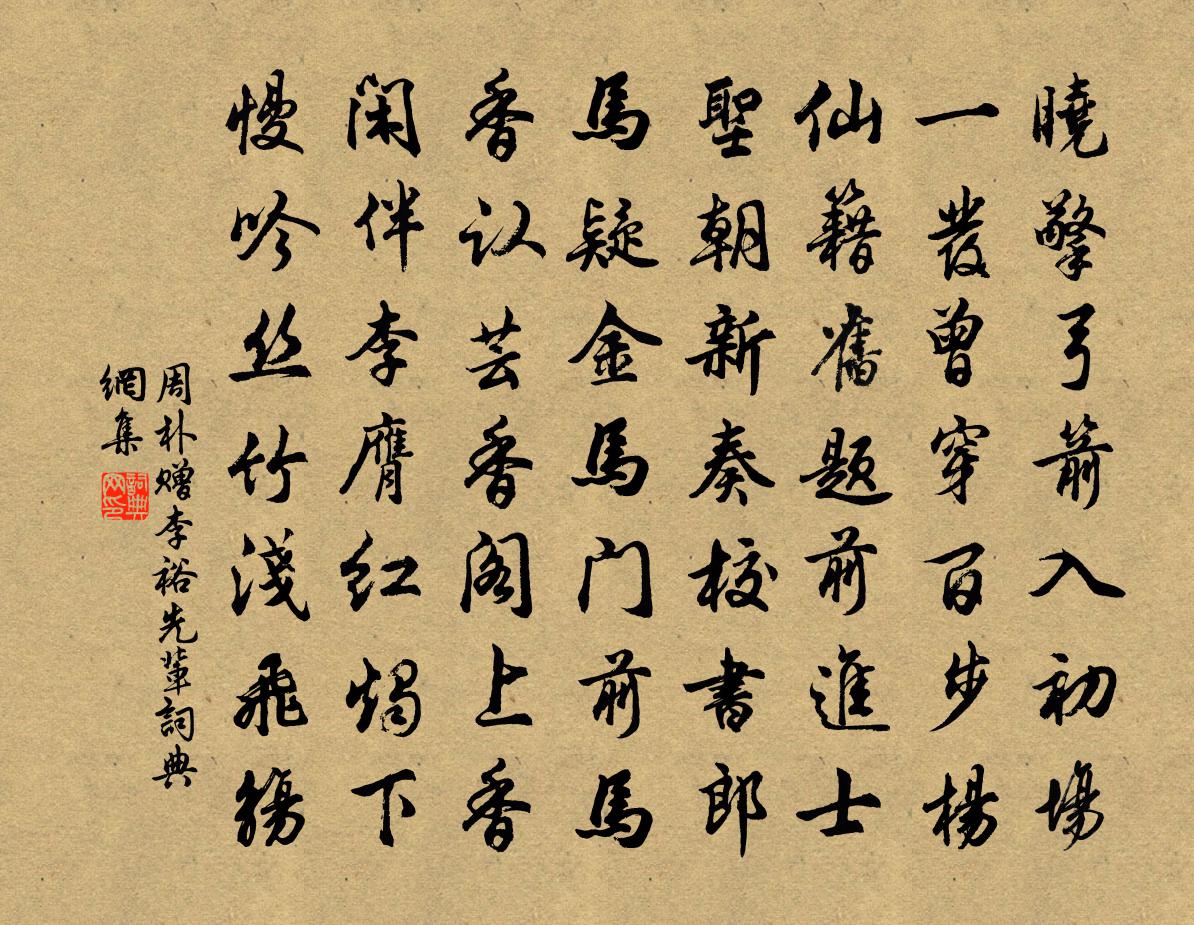 曉擎弓箭入初場
一發曾穿百步楊
仙籍舊題前進士
聖朝新奏校書郎
馬疑金馬门前馬
香认芸香阁上香
闲伴李膺红燭下
慢吟丝竹淺飛觴
周朴赠李裕先輩詞典
網集
詞典
网印